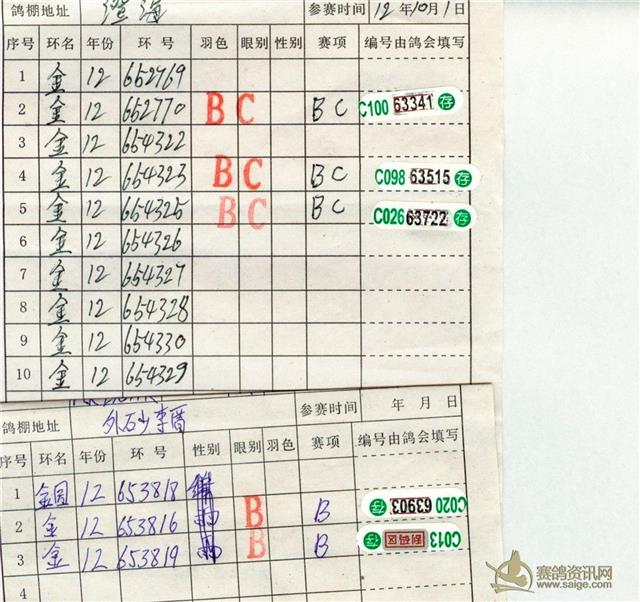 鸽棚地址 澄海 参赛时间 12年10月1日
序号 环名 年份 环号 羽色 眼别 性别 赛项 编号由鸽会填写
1 金 12 652769
2 金 12 652770 B C B C C100 63341 存
3 金 12 654322
4 金 12 654323 B C B C C098 63515 存
5 金 12 654325 B C B C C026 63722 存
6 金 12 654326
7 金 12 654327
8 金 12 654328
9 金 12 654330
10 金 12 654329
鸽棚地址 外砂李 参赛时间 年 月 日
序号 环名 年份 环号 性别 眼别 羽色 赛项 编号由鸽会填写
1 金 12 653818
2 金 12 653816 B B C020 63903 存
3 金 12 653819 B B C013 存
4
赛鸽资讯网
www.saige.com